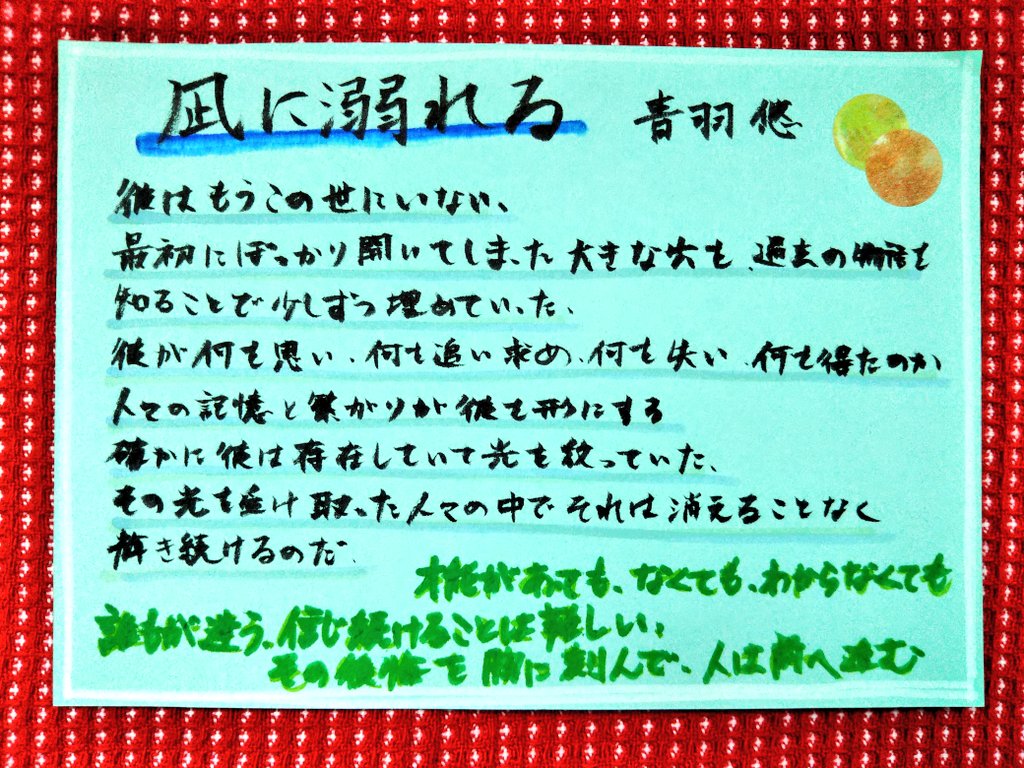 凪に溺れる 青羽悠
彼はもうこの世にいない、
最初にぽっかり開いてしまった大きな穴を、過去の物語を
知ることで少しずつ埋めていった。
彼が何を思い、何を追い求め、何を失い、何を得たのか
人々の記憶と繋がりが彼を形にする
確かに彼は存在していて光を放っていた、
その光を受け取った人々の中でそれは消えることなく
輝き続けるのだ。
才能があっても、なくても、わからなくても
誰もが迷う、信じ続けることは難しい、
その後悔を胸に刻んで、人は前へ進む